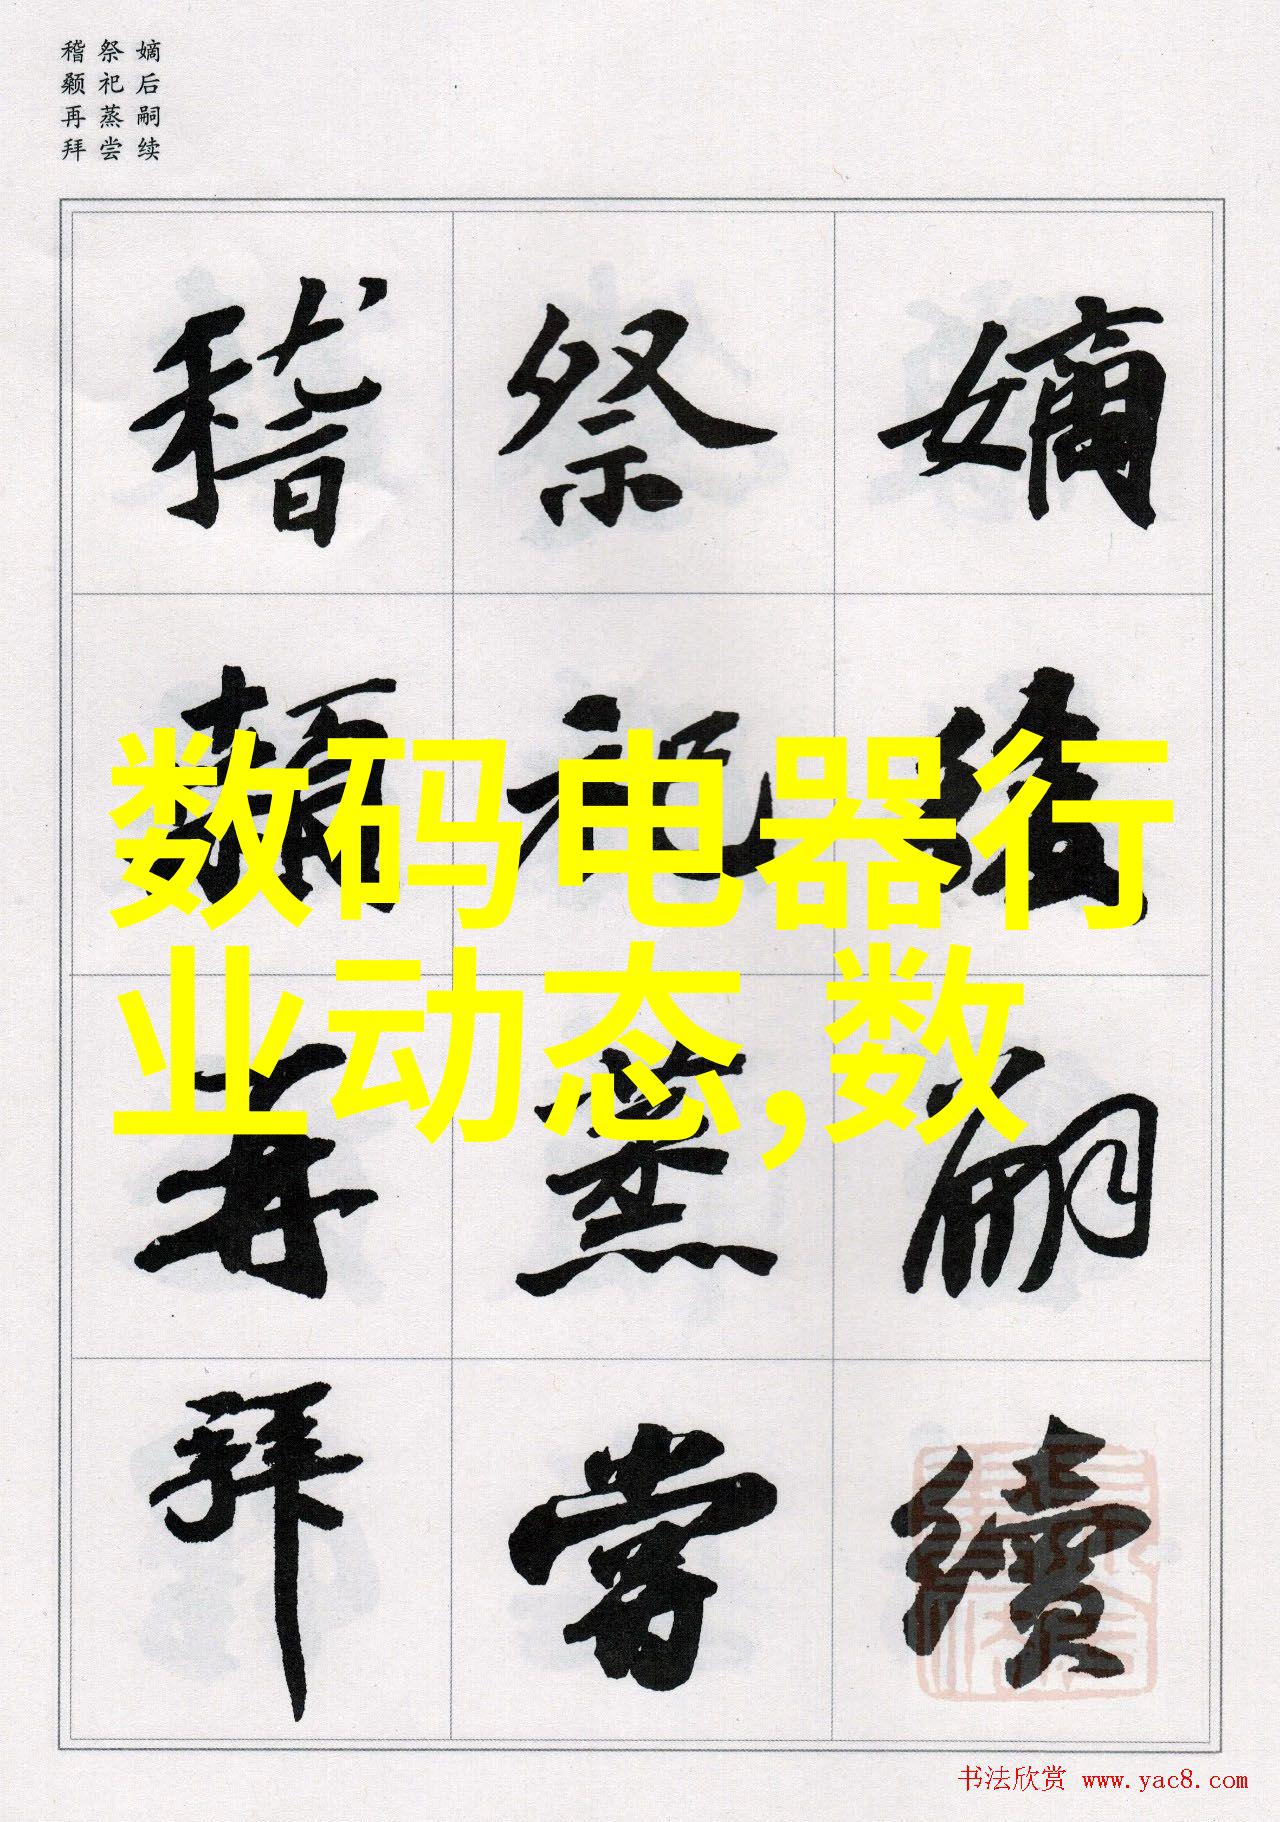 嫡后嗣续
祭祀蒸尝
稽颡再拜
嫡後嗣續
祭祀蒸嘗
稽顙再拜
数码电器行
业动态,数
书法欣赏 www.yac8.com